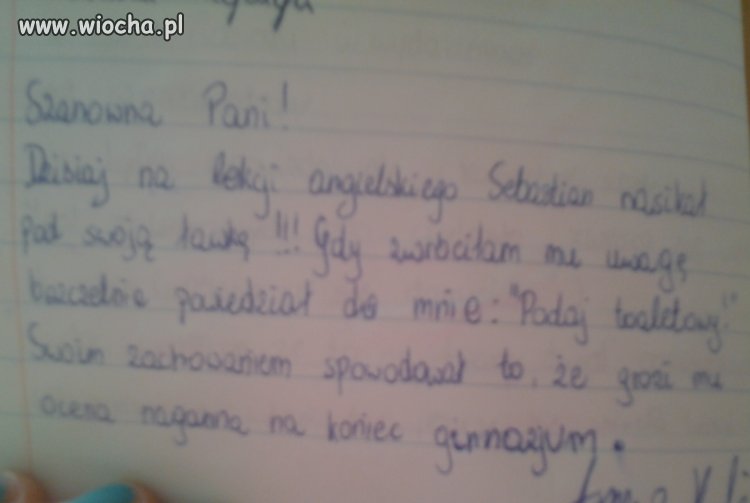 www.wiocha.pl
Szanowna Pani!
Dzisiaj na lekcji angielskiego Sebastian nasikał
pod swoją ławką !!! Gdy zwróciłam mu uwagę
bezczelnie powiedział do mnie: "Podaj toaletowy!"
Swoim zachowaniem spowodował to, że grozi mu
ocena naganna na koniec gimnazjum.